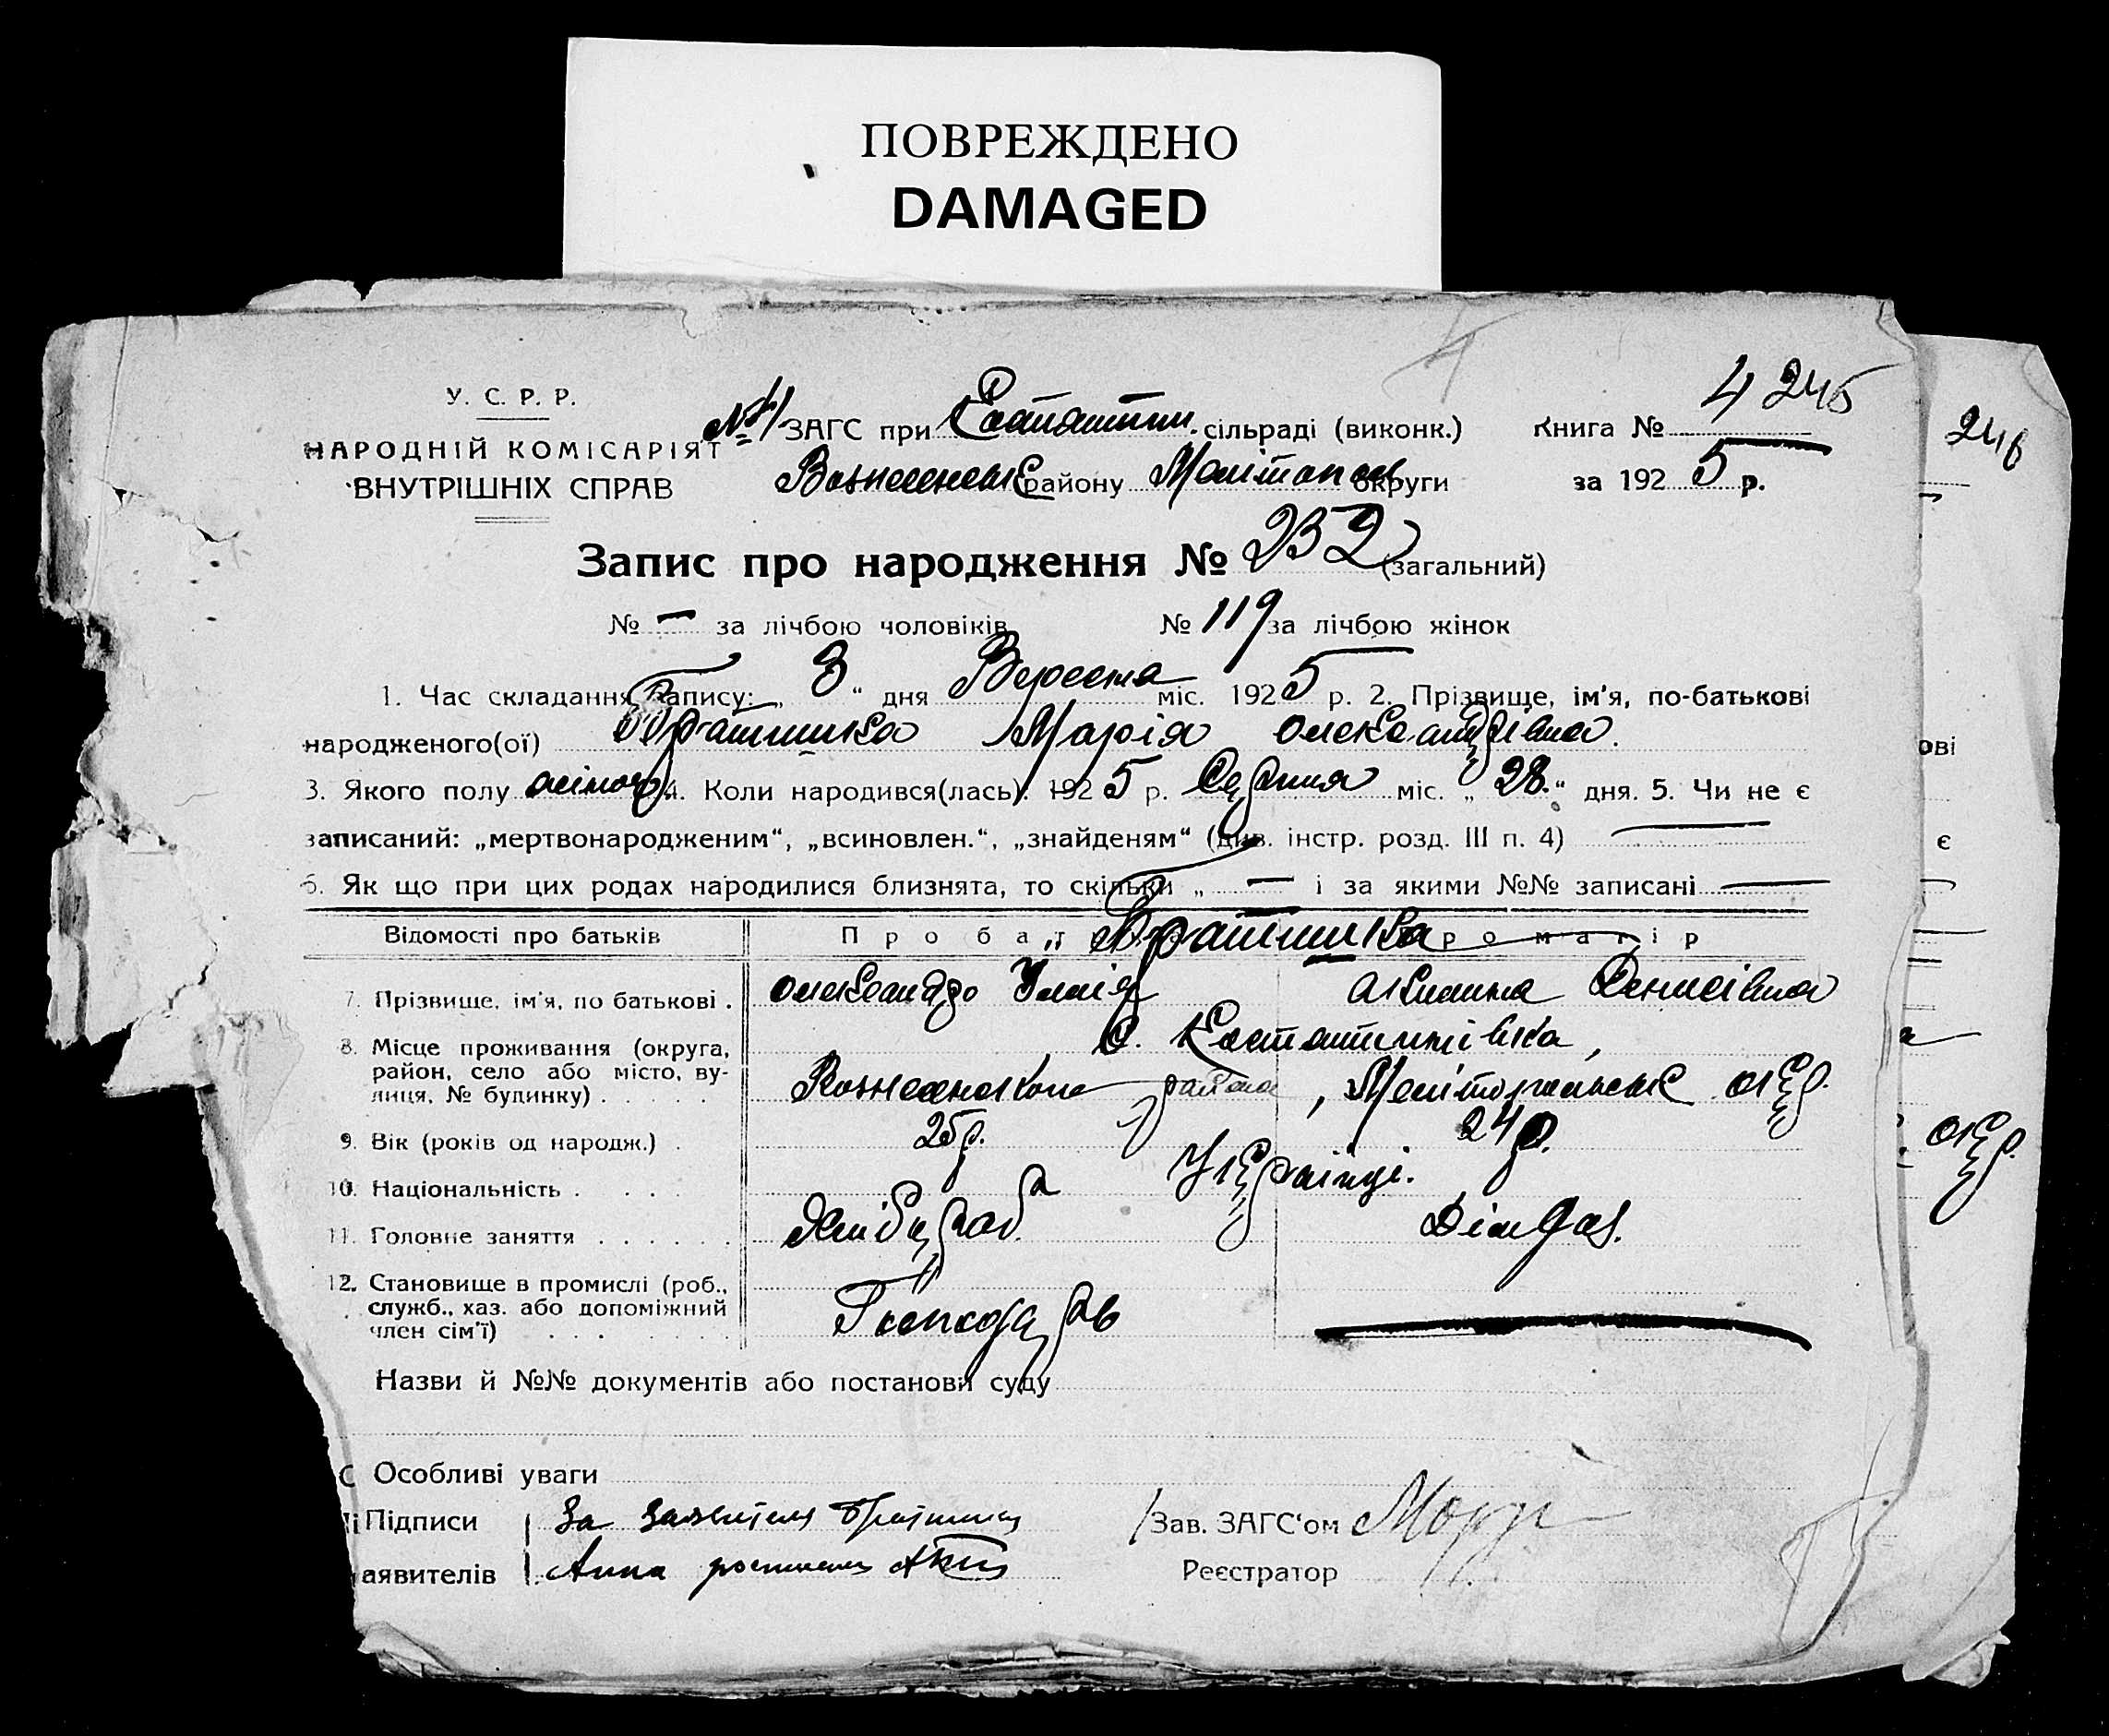 ПОВРЕЖДЕНО
DAMAGED
4 245
У. С. Р. Р.
НАРОДНІЙ КОМІСАРІЯТ
ВНУТРІШНІХ СПРАВ
№ 1 ЗАГС при Костянтин. сільраді (виконк.) Книга №
246
Вознесенськ району Мелітопол округи за 192 5 р.
Запис про народження № 232 (загальний)
№ — за лічбою чоловіків № 119 за лічбою жінок
1. Час складання запису: „ 3 “ дня Вересня міс. 192 5 р. 2. Прізвище, ім'я, по-батькові
народженого(ої) Братишка Марія Олександрівна.
3. Якого полу жіноч. 4. Коли народився(лась). 192 5 р. Серпня міс. „ 28. “ дня. 5. Чи не є
записаний: „мертвонародженим“, „всиновлен.“, „знайденям“ (див. інстр. розд. III п. 4) —
6. Як що при цих родах народилися близнята, то скільки „ — і за якими №№ записані —
Відомості про батьків Про бат Братишка ро матір
7. Прізвище, ім'я, по батькові . Олександр Акилина Денисівна
8. Місце проживання (округа, район, село або місто, вулиця, № будинку) . . . . .
С. Костянтинівка,
району, Мелітопільськ окр.
9. Вік (років од народж.) . 25 р. 24 р.
10. Національність . . . . Українці.
11. Головне заняття . . . . . . Хлібороб. Дом
12. Становище в промислі (роб., служб., хаз. або допоміжний член сім'ї) . . . . Господар —
Назви й №№ документів або постанови суду
Особливі уваги
Підписи За Братишка Зав. ЗАГС'ом
аявителів Анна Реєстратор
ові
є
окр.